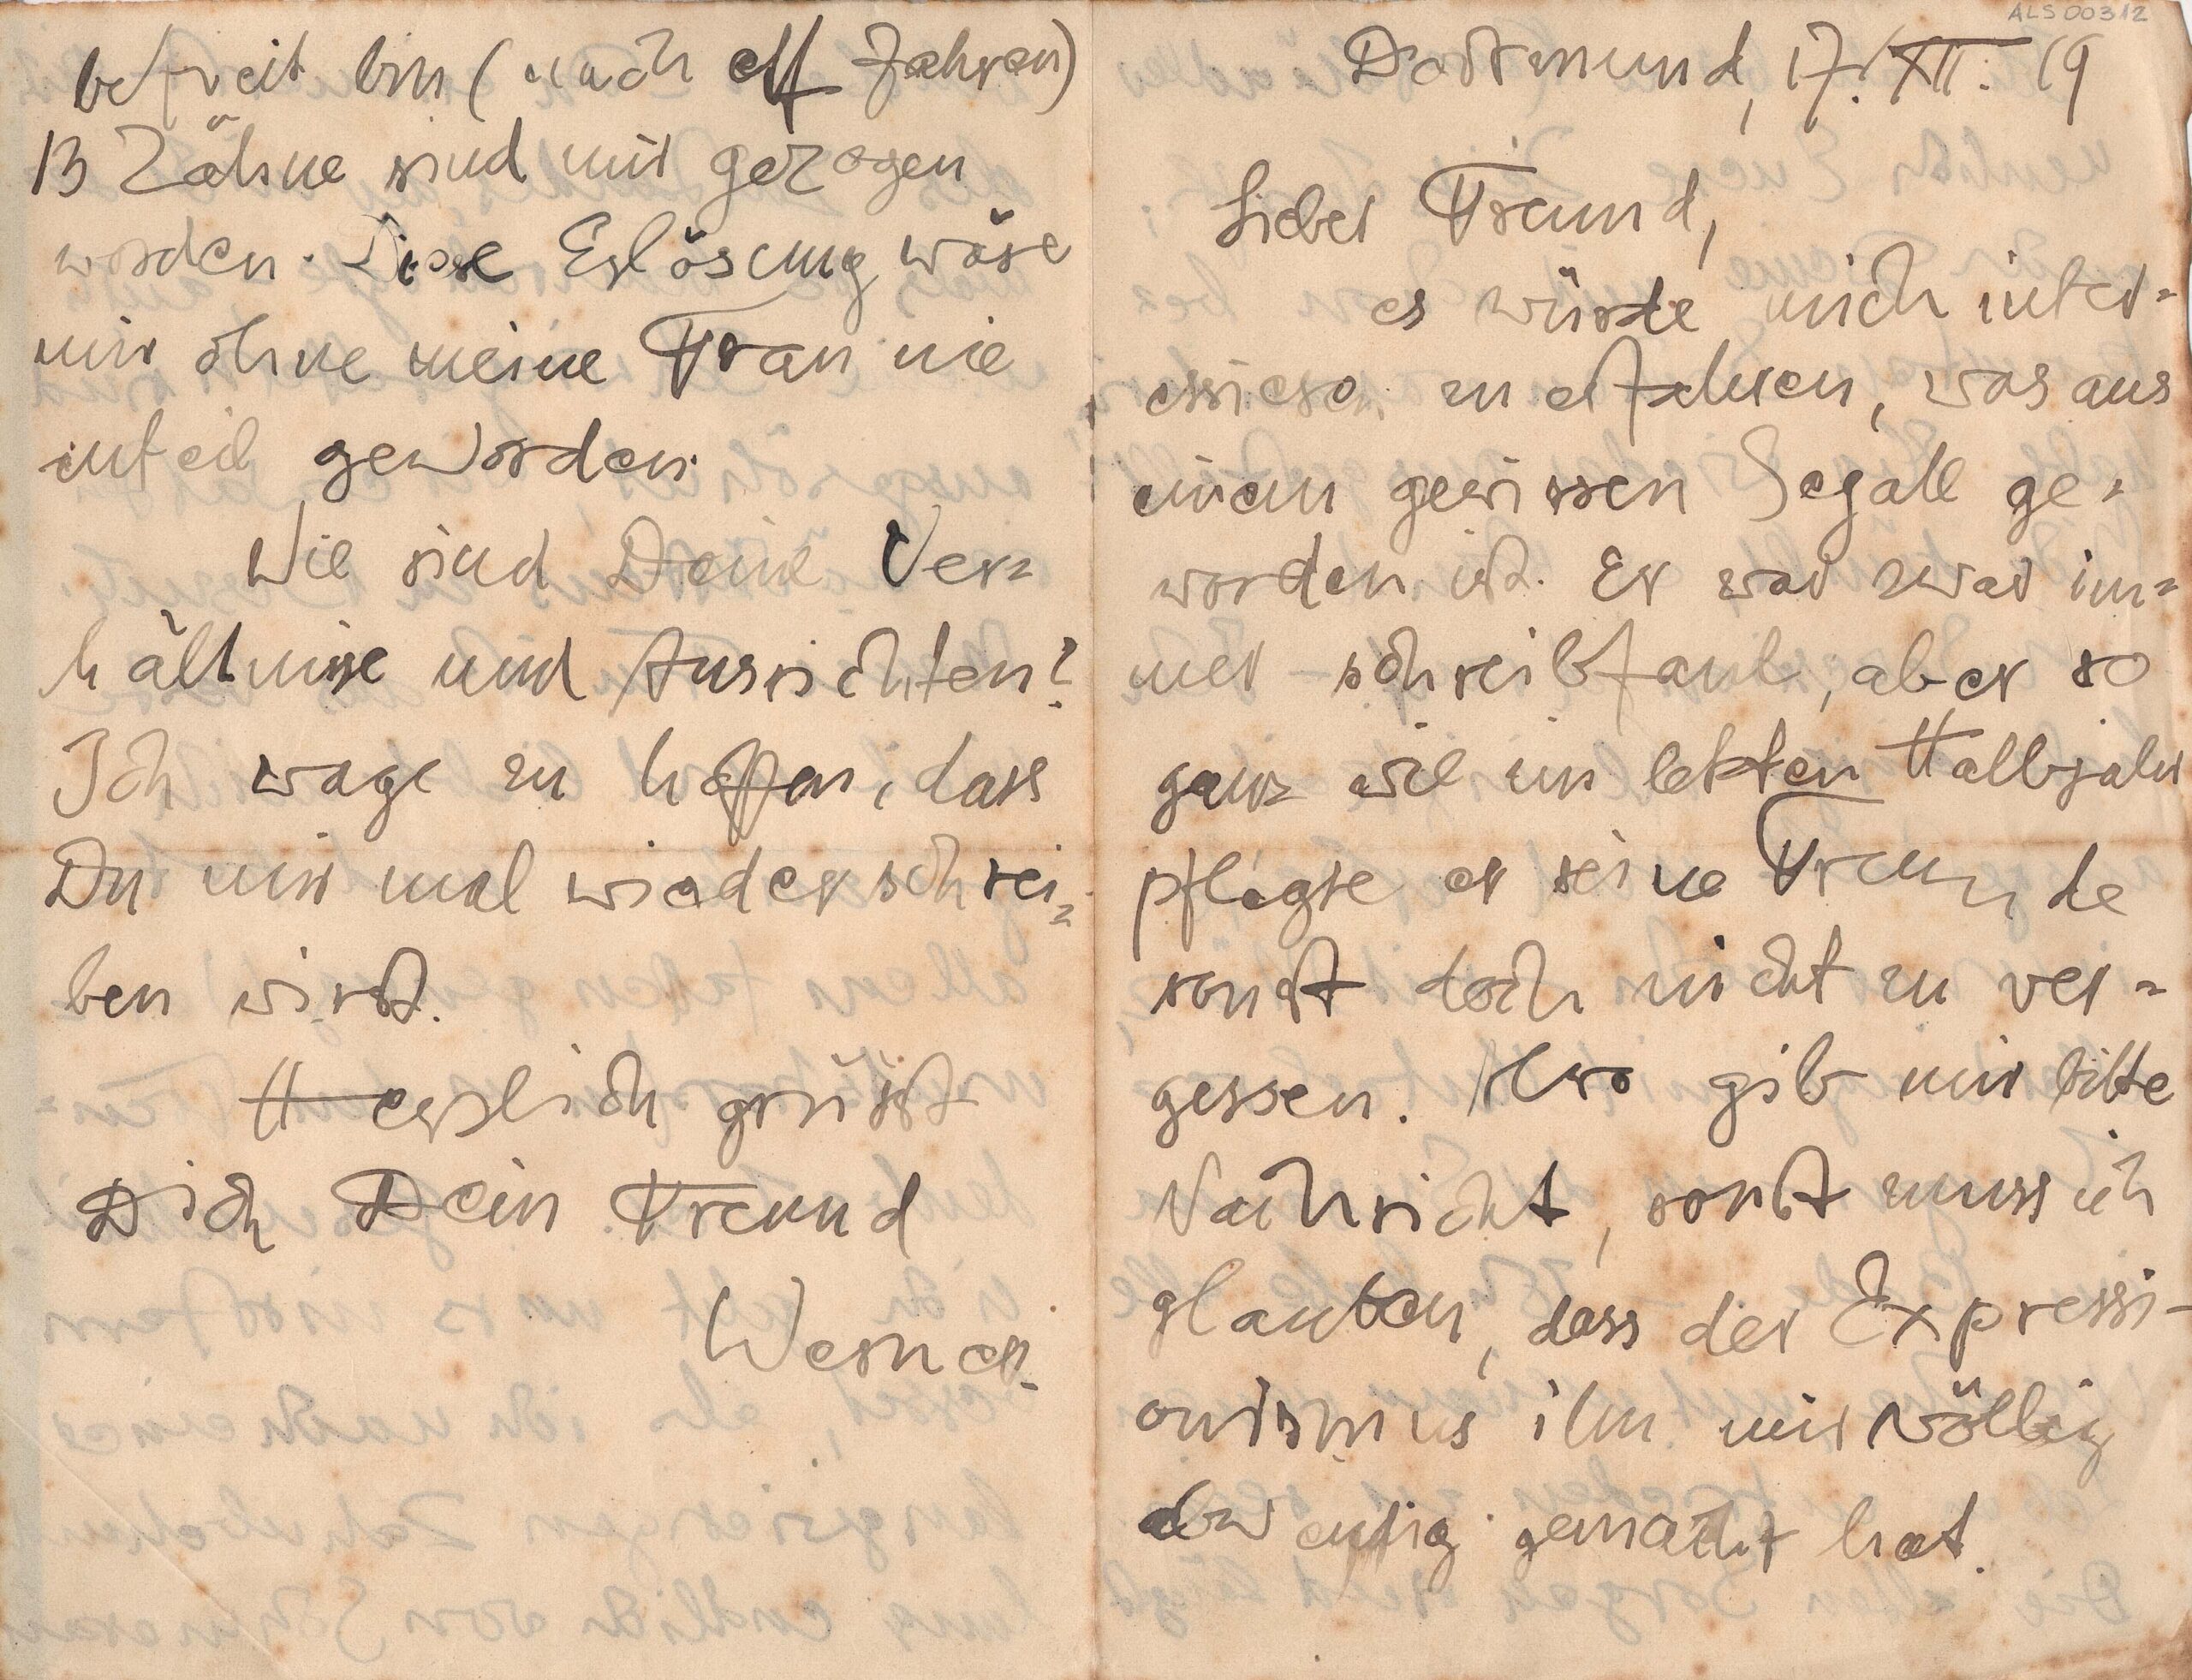 ALS 00312
Dortmund, 17. XII. 19
Lieber Freund,
es würde mich inter-
essieren zu erfahren, was aus
einem gewissen Segall ge-
worden ist. Er war zwar im-
mer schreibfaul, aber so
ganz wie im letzten Halbjahr
pflegte er seine Freunde
sonst doch nicht zu ver-
gessen. Also gib mir bitte
Nachricht, sonst muss ich
glauben, dass der Expressi-
onismus ihn mir völlig
abwendig gemacht hat.
befreit bin (nach elf Jahren)
13 Zähne sind mir gezogen
worden. Diese Erlösung wäre
mir ohne meine Frau nie
zuteil geworden.
Wie sind Deine Ver-
hältnisse und Aussichten?
Ich wage zu hoffen, dass
Du mir mal wieder schrei-
ben wirst.
Herzlich grüsst
Dich Dein Freund
Werner.